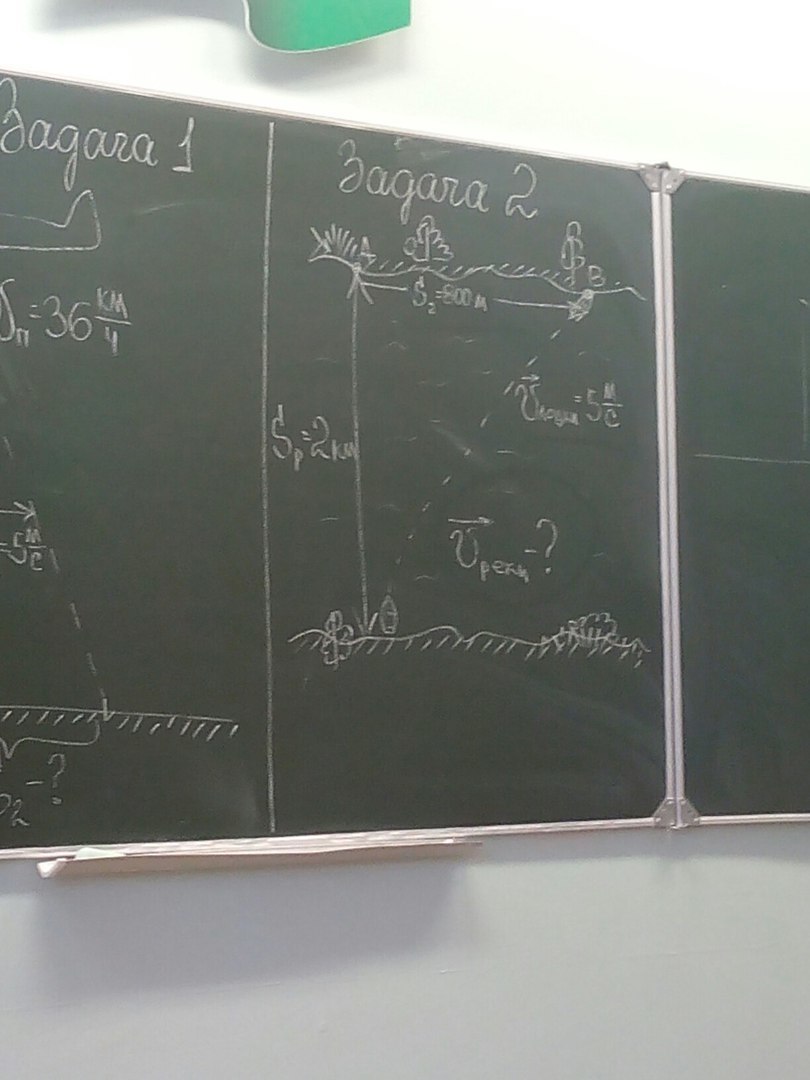 Задача 1
υп=36 км/ч
=5 м/с
S2-?
Задача 2
A
B
S2=800 м
υлодки=5 м/с
Sр=2км
υреки-?